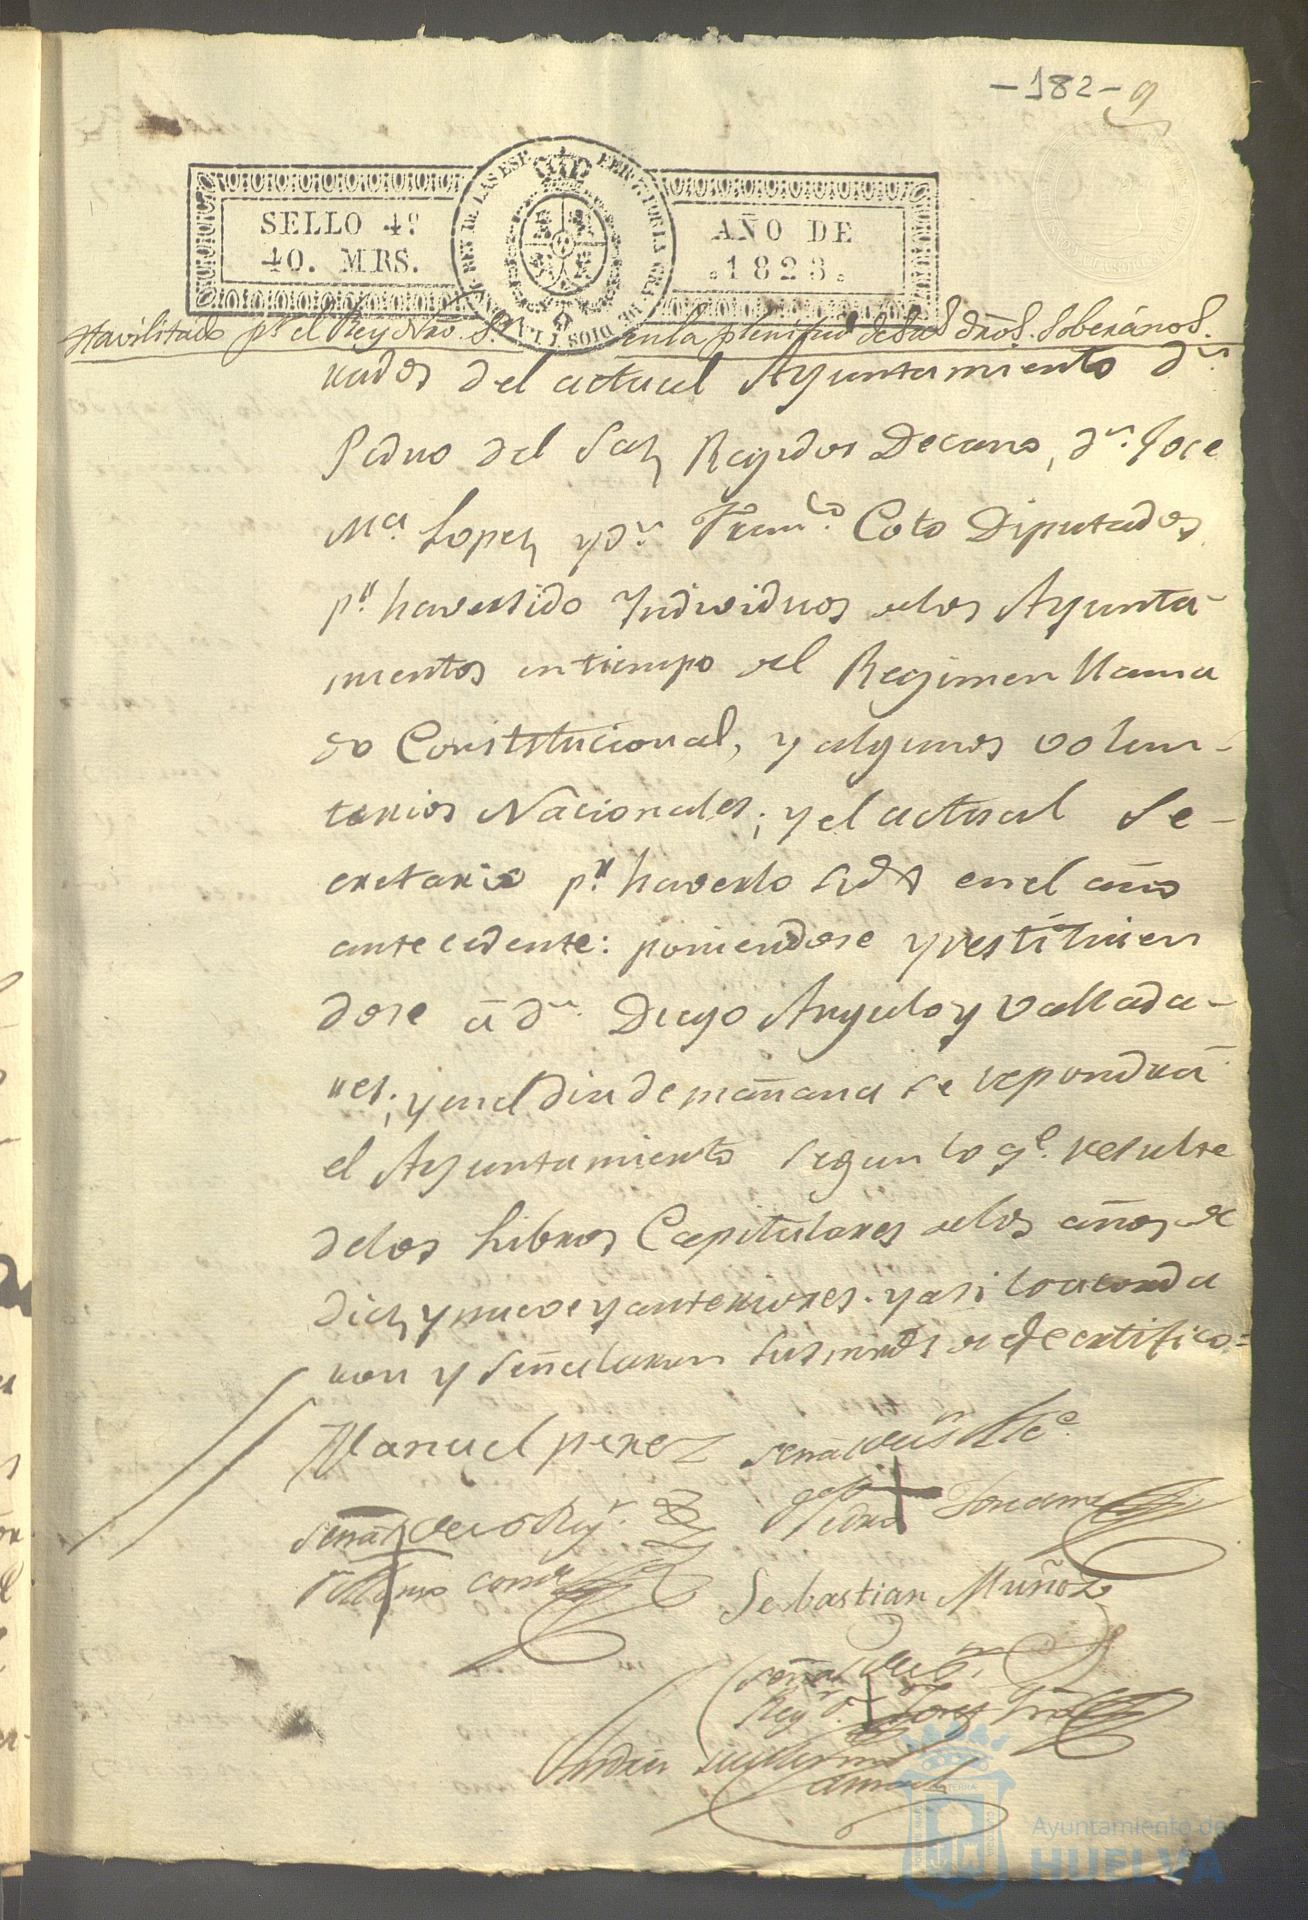 -182- 9
SELLO 4º
40. MRS.
AÑO DE
1823.
Havilitado pr el Rey Nro. Sr. en la plenitud de sus dros. Soberanos.
rados del actual Ayuntamiento Dn.
Pedro del Saz Regidor Decano, dn. Jose
Ma. Lopez y dn. Franco. Coto Diputados
pr haver sido Individuos de los Ayunta-
mientos en tiempo del Regimen llama
do Constitucional, y algunos volun-
tarios Nacionales; y el actual Se-
cretario pr. haverlo sido en el año
antecedente: poniendose y restituien
dose á dn. Diego Angulo y Vallada-
res; y en el dia de mañana se repondrá
el Ayuntamiento segun lo qe. resulte
de los Libros Capitulares de los años de
diez y nueve y anteriores. y asi lo acorda
ron y señalaron sus mrds de qe certifico=
Manuel perez
Sebastian Muñoz
Ayuntamiento de
HUELVA